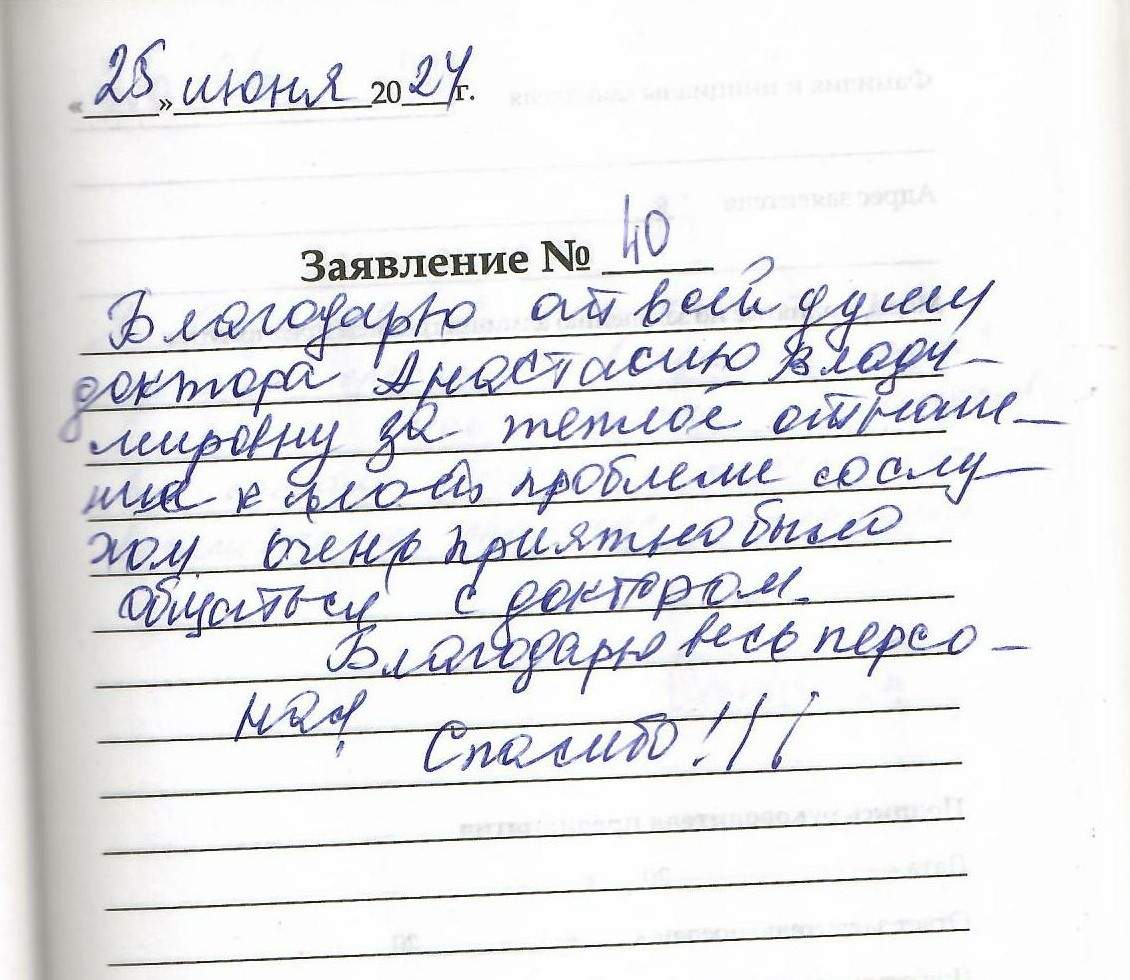 «25» июня 2024 г.
Заявление № 40
Благодарю от всей души
доктора Анастасию Влади-
мировну за теплое отноше-
ние к моей проблеме со слу-
хом очень приятно было
общаться с доктором.
Благодарю весь персо-
нал!
Спасибо!!!